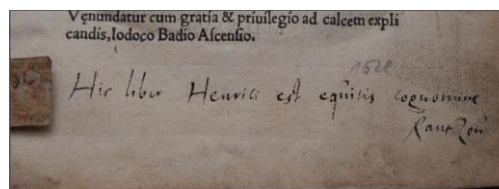 Vęnundatur cum gratia & priuilegio ad calcem expli
candis, Iodoco Badio Ascensio.
1628
Hic liber Henrici est equitis cognomine
Ranzou